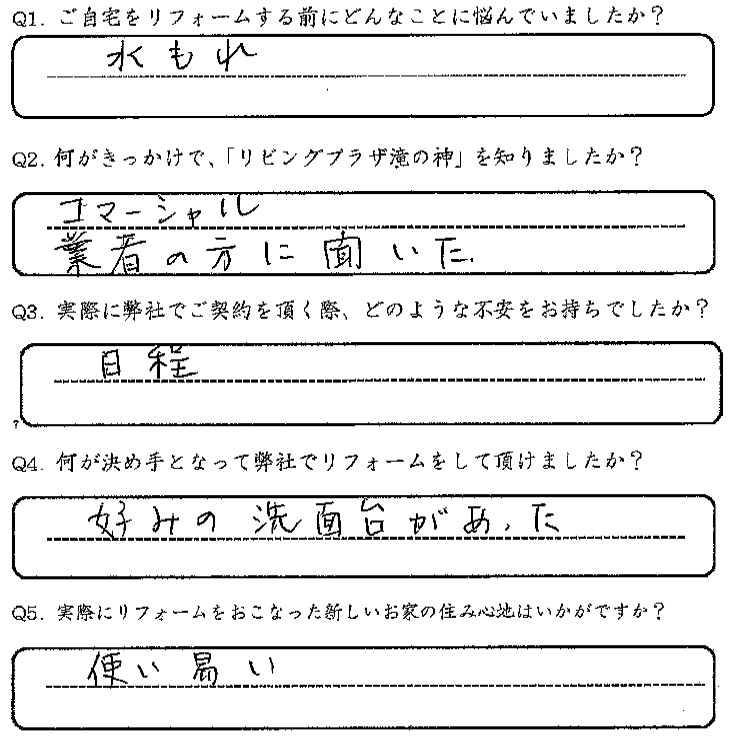 Q1. ご自宅をリフォームする前にどんなことに悩んでいましたか？
水もれ
Q2. 何がきっかけで、「リビングプラザ滝の神」を知りましたか？
コマーシャル
業者の方に聞いた.
Q3. 実際に弊社でご契約を頂く際、どのような不安をお持ちでしたか？
日程
?
Q4. 何が決め手となって弊社でリフォームをして頂けましたか？
好みの洗面台があった
Q5. 実際にリフォームをおこなった新しいお家の住み心地はいかがですか？
使い易い